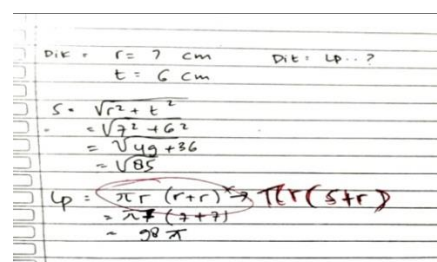 Dik : r = 7 cm Dit : Lp..?
t = 6 cm
S = √r² + t²
= √7² + 6²
= √49 + 36
= √85
Lp = πr (r+r) → πr(s+r)
= π7 (7+7)
= 98 π